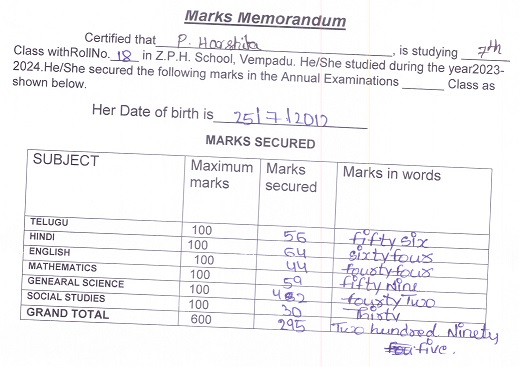 Marks Memorandum
Certified that P. Harshita, is studying 7th
Class withRollNo. 18 in Z.P.H. School, Vempadu. He/She studied during the year2023-
2024.He/She secured the following marks in the Annual Examinations ______ Class as
shown below.
Her Date of birth is 25/7/2012
MARKS SECURED
SUBJECT Maximum marks Marks secured Marks in words
TELUGU 100 56 fifty six
HINDI 100 64 sixty four
ENGLISH 100 44 fourty four
MATHEMATICS 100 59 fifty Nine
GENEARAL SCIENCE 100 42 fourty Two
SOCIAL STUDIES 100 30 Thirty
GRAND TOTAL 600 295 Two hundred Ninety
five.